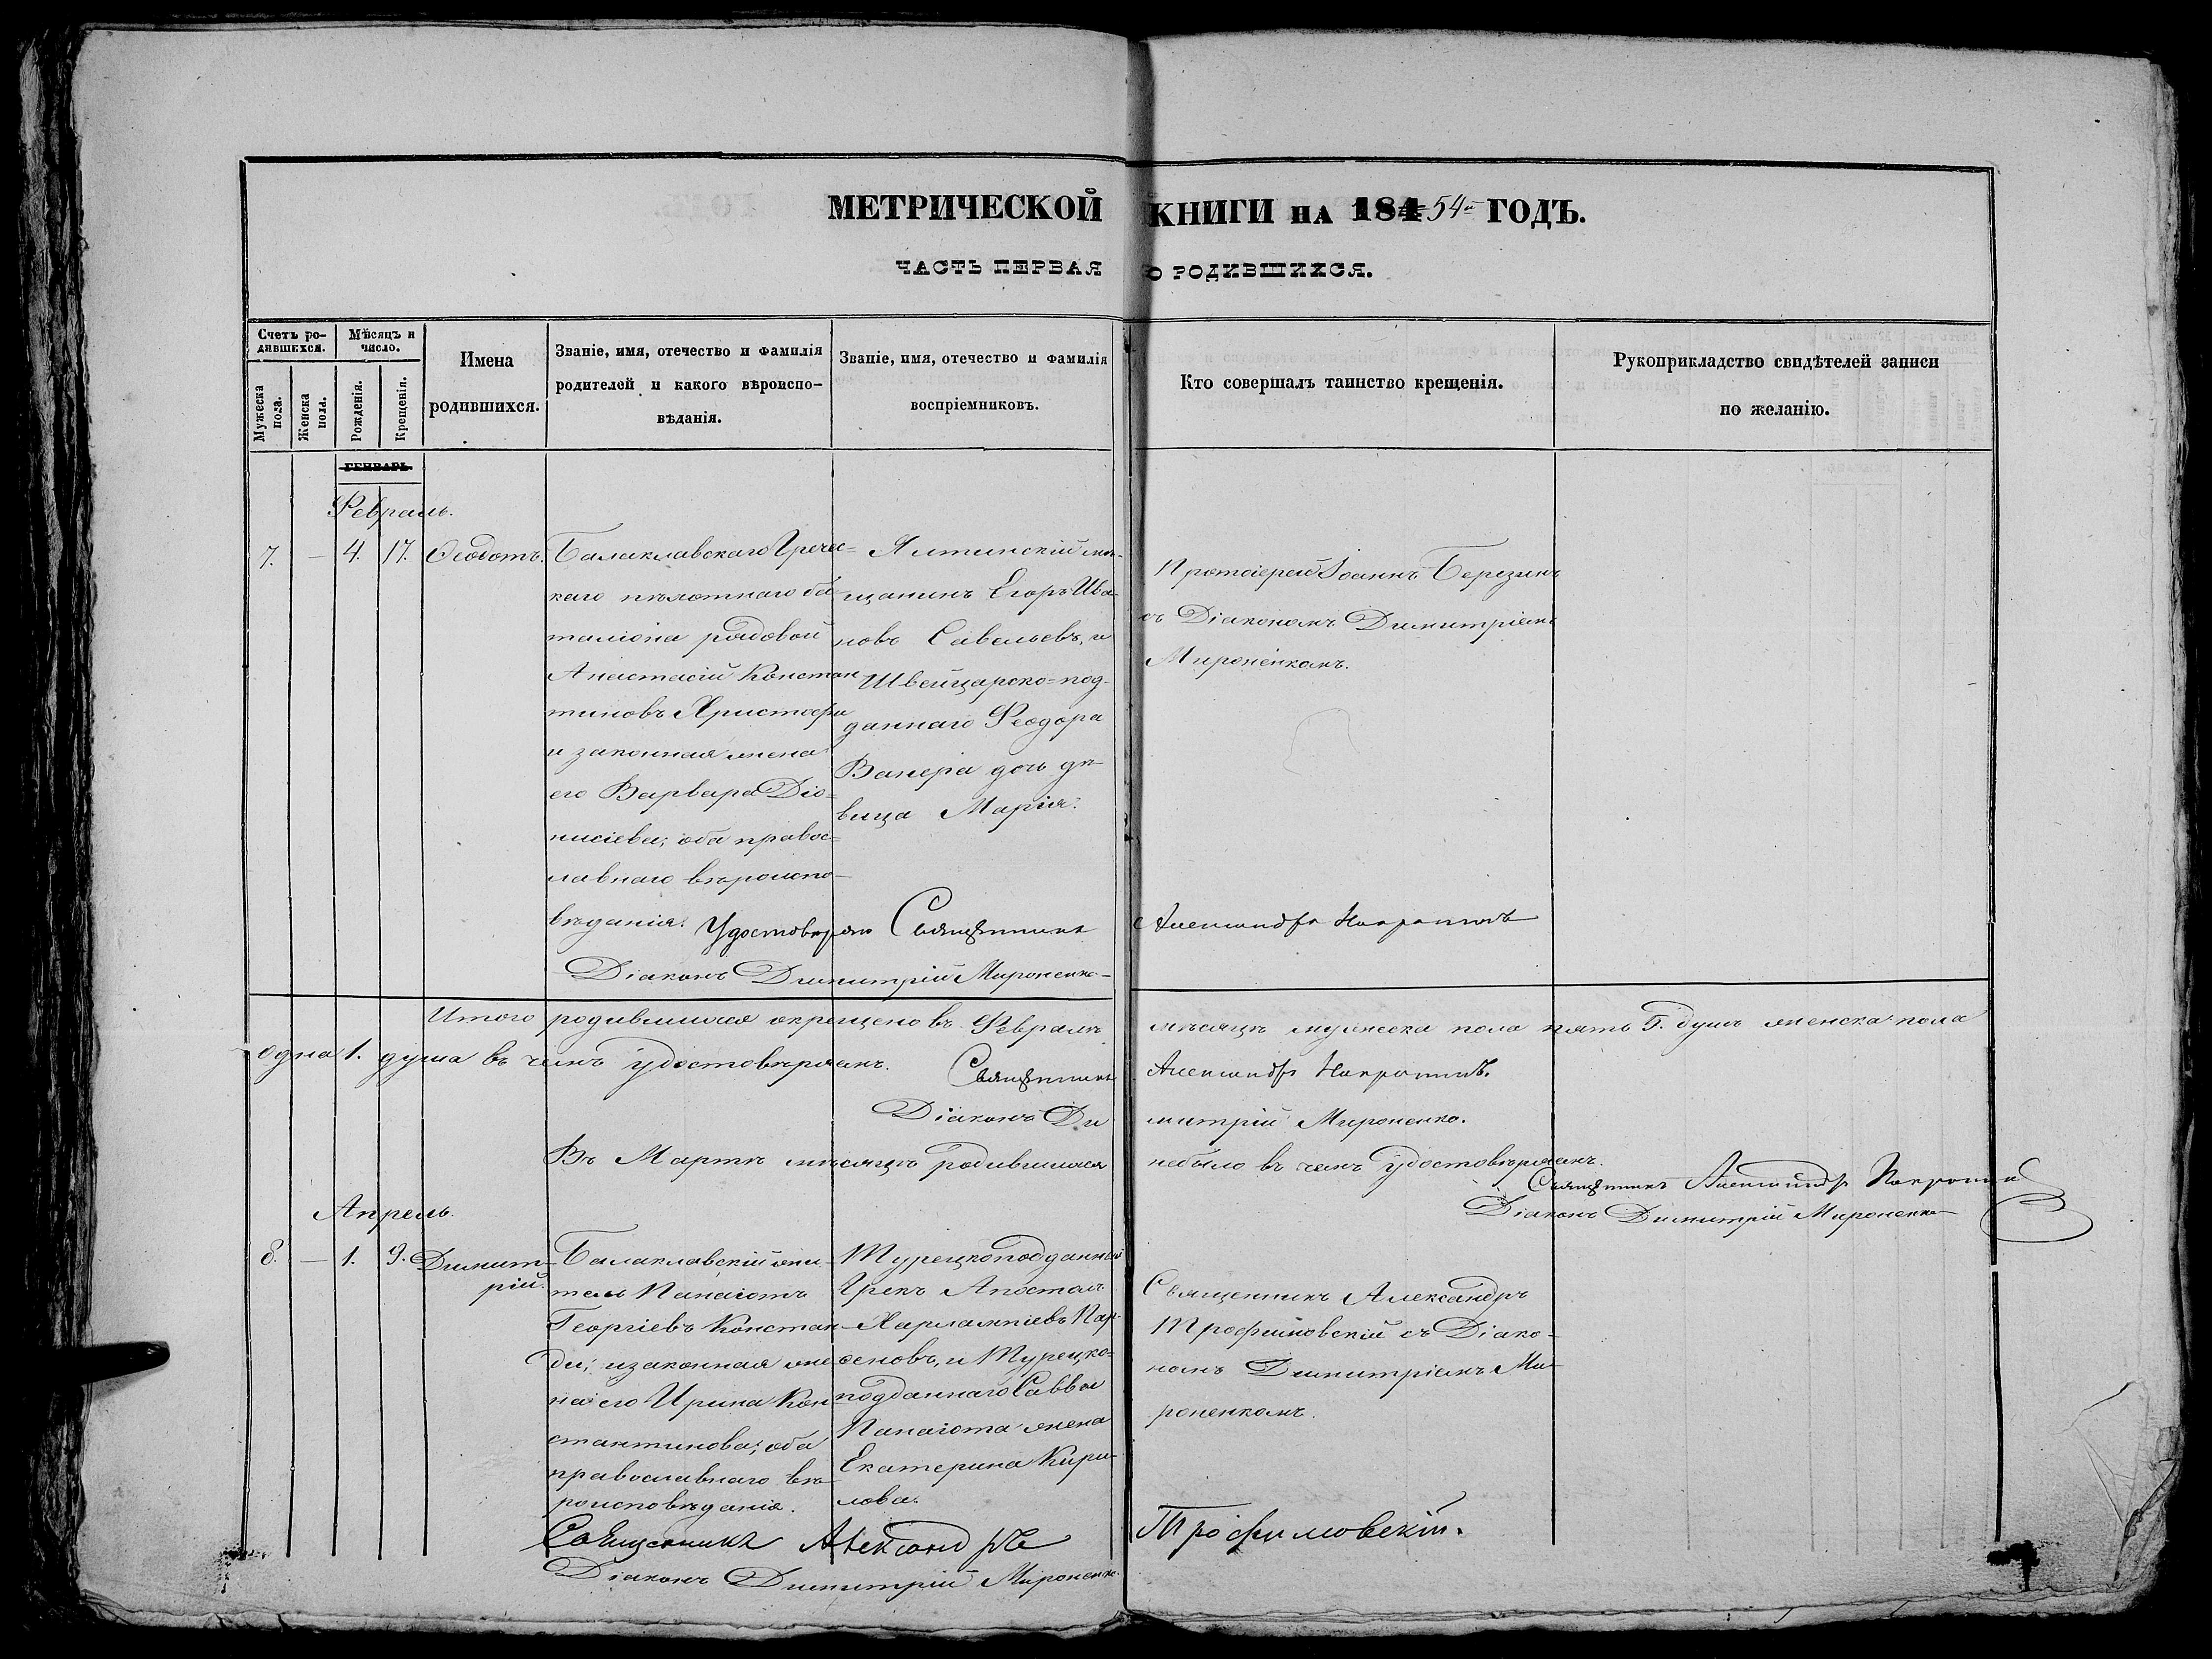 МЕТРИЧЕСКОЙ КНИГИ НА 184 54й ГОДЪ.
ЧАСТЬ ПЕРВАЯ О РОДИВШИХСЯ.
Счетъ ро-
дившихся.
Мужеска пола.
Женска пола.
Мѣсяцъ и
число.
Рожденія.
Крещенія.
Имена
родившихся.
Званіе, имя, отечество и фамилія
родителей и какого вѣроиспо-
вѣданія.
Званіе, имя, отечество и фамилія
воспріемниковъ.
Кто совершалъ таинство крещенія.
Рукоприкладство свидѣтелей записи
по желанію.
ГЕНВАРЬ.
Февраль.
7. — 4. 17. Ѳеодотъ.
Балаклавскаго Гречес=
каго пѣхотнаго ба-
таліона рядовой
Анастасій Констан
тиновъ Христофи
и законная жена
его Варвара Діо=
нисіева; оба правос=
лавнаго вѣроиспо-
вѣданія.
Ялтинскій мѣ-
щанинъ Егоръ Ива-
новъ Савельевъ, и
Швейцарско=под-
даннаго Феодора
Ванера дочь дѣ-
вица Марія.
Протоіерей Іоаннъ Березинъ
съ Діакономъ Димитріемъ
Мироненкомъ.
Удостовѣряю Священникъ Александръ
Діаконъ Димитрій Мироненко
Итого родившихся окрещено въ Февралѣ мѣсяцѣ мужеска пола пять 5. душъ женска пола
одна 1. душа въ чемъ удостовѣряемъ.
Священникъ Александръ
Діаконъ Ди митрій Мироненко.
Въ Мартѣ мѣсяцѣ родившихся небыло въ чемъ удостовѣряемъ.
Священникъ Александръ
Діаконъ Димитрій Мироненко
Апрель.
8. — 1. 9. Димит-
рій.
Балаклавскій жи-
тель Панаіотъ
Георгіевъ Констан-
ди; и законная же
на его Ирина Кон
стантинова; оба
православнаго вѣ-
роисповѣданія.
Турецкоподданный
Грекъ Апостолъ
Харлампіевъ Пар-
сеновъ, и Турецко=
подданнаго Саввы
Панаіота жена
Екатерина Кири-
лова.
Священникъ Александръ
Трофимовскій съ Діако-
номъ Димитріемъ Ми-
роненкомъ.
Священникъ Александръ Трофимовскій.
Діаконъ Димитрій Мироненко.